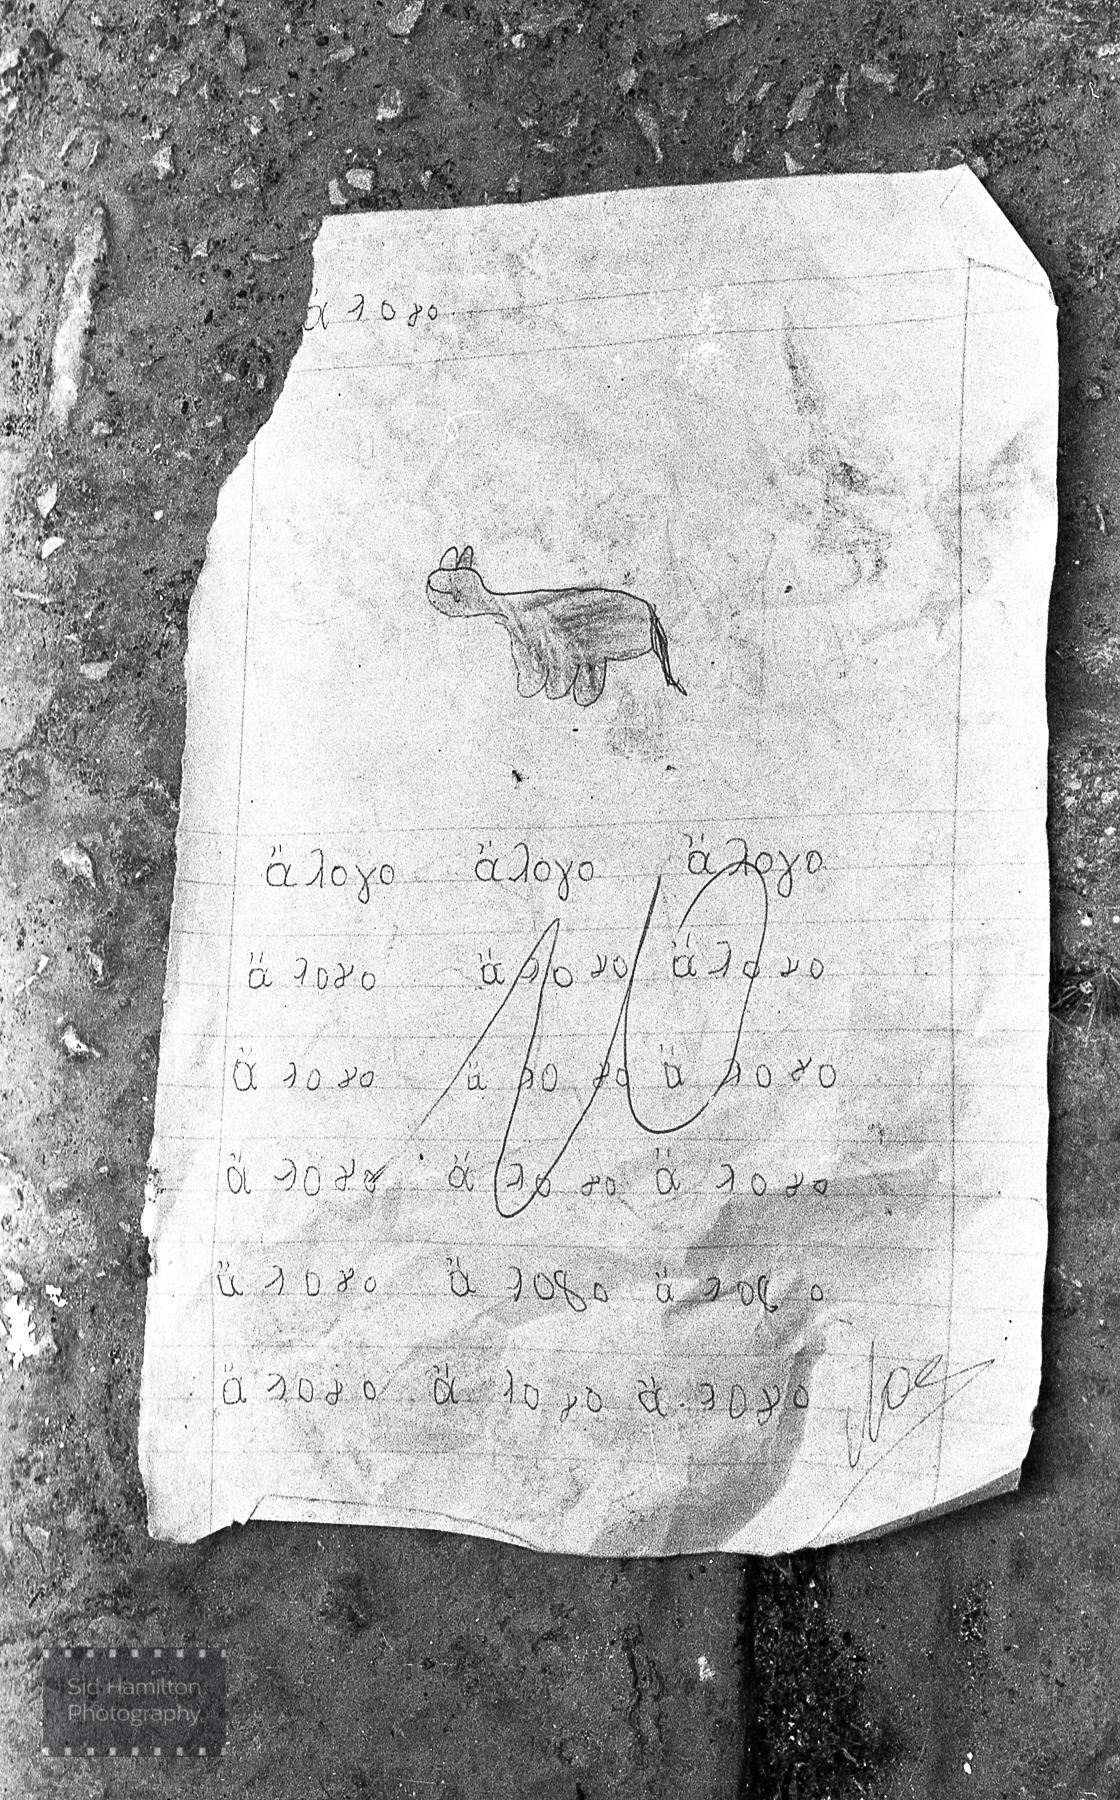 ἄλογο
ἄλογο ἄλογο ἄλογο
ἄλογο ἄλογο ἄλογο
ἄλογο ἄλογο ἄλογο
ἄλογο ἄλογο ἄλογο
ἄλογο ἄλογο ἄλογο
ἄλογο ἄλογο ἄλογο
10
Sid Hamilton
Photography